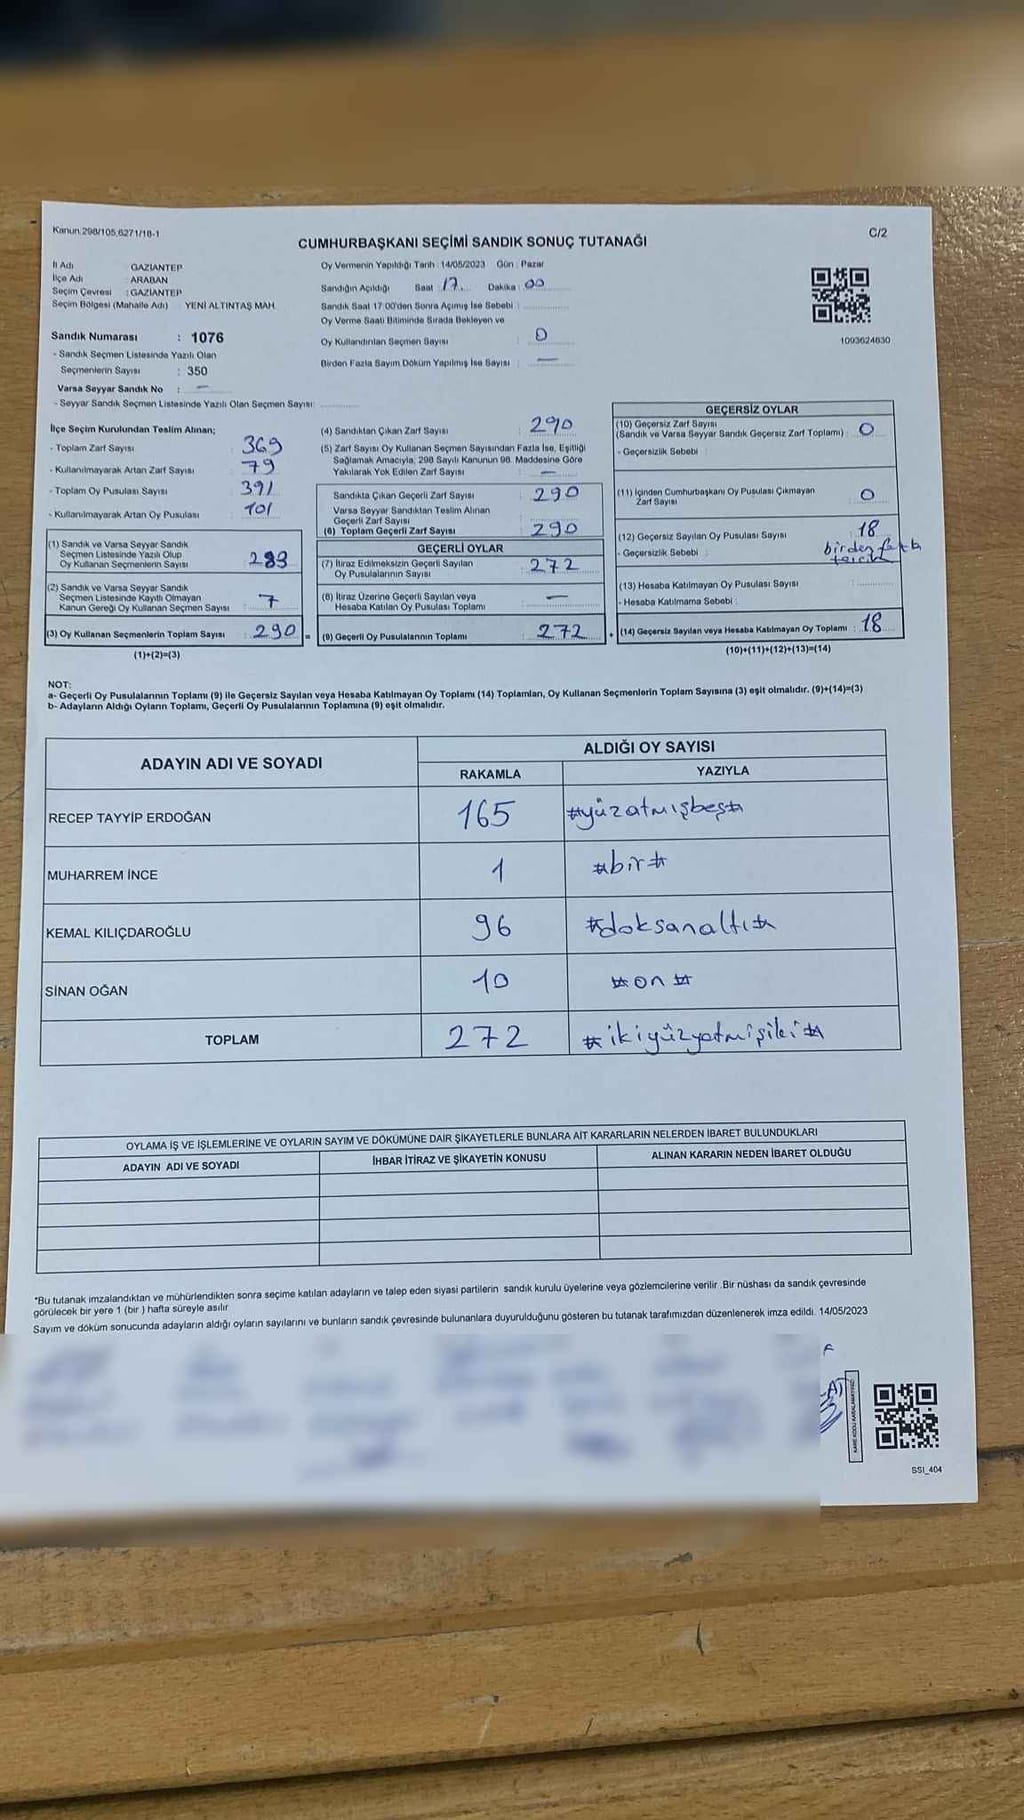 Kanun:298/105,6271/18-1
C/2
CUMHURBAŞKANI SEÇİMİ SANDIK SONUÇ TUTANAĞI
İl Adı GAZİANTEP
İlçe Adı ARABAN
Seçim Çevresi : GAZİANTEP
Seçim Bölgesi (Mahalle Adı) YENİ ALTINTAŞ MAH.
Sandık Numarası : 1076
- Sandık Seçmen Listesinde Yazılı Olan
Seçmenlerin Sayısı : 350
Varsa Seyyar Sandık No : —
- Seyyar Sandık Seçmen Listesinde Yazılı Olan Seçmen Sayısı:
Oy Vermenin Yapıldığı Tarih : 14/05/2023 Gün : Pazar
Sandığın Açıldığı Saat : 17 Dakika : 00
Sandık Saat 17:00'den Sonra Açımış İse Sebebi :
Oy Verme Saati Bitiminde Sırada Bekleyen ve
Oy Kullandırılan Seçmen Sayısı : 0
Birden Fazla Sayım Döküm Yapılmış İse Sayısı : —
1093624630
İlçe Seçim Kurulundan Teslim Alınan;
- Toplam Zarf Sayısı : 369
- Kullanılmayarak Artan Zarf Sayısı : 79
- Toplam Oy Pusulası Sayısı : 391
- Kullanılmayarak Artan Oy Pusulası : 101
(1) Sandık ve Varsa Seyyar Sandık
Seçmen Listesinde Yazılı Olup
Oy Kullanan Seçmenlerin Sayısı : 283
(2) Sandık ve Varsa Seyyar Sandık
Seçmen Listesinde Kayıtlı Olmayan
Kanun Gereği Oy Kullanan Seçmen Sayısı : 7
(3) Oy Kullanan Seçmenlerin Toplam Sayısı : 290
(1)+(2)=(3)
(4) Sandıktan Çıkan Zarf Sayısı : 290
(5) Zarf Sayısı Oy Kullanan Seçmen Sayısından Fazla İse, Eşitliği
Sağlamak Amacıyla, 298 Sayılı Kanunun 98. Maddesine Göre
Yakılarak Yok Edilen Zarf Sayısı : —
Sandıkta Çıkan Geçerli Zarf Sayısı : 290
Varsa Seyyar Sandıktan Teslim Alınan
Geçerli Zarf Sayısı
(6) Toplam Geçerli Zarf Sayısı : 290
GEÇERLİ OYLAR
(7) İtiraz Edilmeksizin Geçerli Sayılan
Oy Pusulalarının Sayısı : 272
(8) İtiraz Üzerine Geçerli Sayılan veya
Hesaba Katılan Oy Pusulası Toplamı : —
= (9) Geçerli Oy Pusulalarının Toplamı : 272 +
GEÇERSİZ OYLAR
(10) Geçersiz Zarf Sayısı
(Sandık ve Varsa Seyyar Sandık Geçersiz Zarf Toplamı) : 0
- Geçersizlik Sebebi :
(11) İçinden Cumhurbaşkanı Oy Pusulası Çıkmayan
Zarf Sayısı : 0
(12) Geçersiz Sayılan Oy Pusulası Sayısı : 18
- Geçersizlik Sebebi : birden fazla
tercih
(13) Hesaba Katılmayan Oy Pusulası Sayısı :
- Hesaba Katılmama Sebebi :
(14) Geçersiz Sayılan veya Hesaba Katılmayan Oy Toplamı : 18
(10)+(11)+(12)+(13)=(14)
NOT:
a- Geçerli Oy Pusulalarının Toplamı (9) ile Geçersiz Sayılan veya Hesaba Katılmayan Oy Toplamı (14) Toplamları, Oy Kullanan Seçmenlerin Toplam Sayısına (3) eşit olmalıdır. (9)+(14)=(3)
b- Adayların Aldığı Oyların Toplamı, Geçerli Oy Pusulalarının Toplamına (9) eşit olmalıdır.
ADAYIN ADI VE SOYADI
ALDIĞI OY SAYISI
RAKAMLA YAZIYLA
RECEP TAYYİP ERDOĞAN 165 #yüzatmışbeş#
MUHARREM İNCE 1 #bir#
KEMAL KILIÇDAROĞLU 96 #doksanaltı#
SİNAN OĞAN 10 #on#
TOPLAM 272 #ikiyüzyetmişiki#
OYLAMA İŞ VE İŞLEMLERİNE VE OYLARIN SAYIM VE DÖKÜMÜNE DAİR ŞİKAYETLERLE BUNLARA AİT KARARLARIN NELERDEN İBARET BULUNDUKLARI
ADAYIN ADI VE SOYADI İHBAR İTİRAZ VE ŞİKAYETİN KONUSU ALINAN KARARIN NEDEN İBARET OLDUĞU
*Bu tutanak imzalandıktan ve mühürlendikten sonra seçime katılan adayların ve talep eden siyasi partilerin sandık kurulu üyelerine veya gözlemcilerine verilir .Bir nüshası da sandık çevresinde
görülecek bir yere 1 (bir ) hafta süreyle asılır
Sayım ve döküm sonucunda adayların aldığı oyların sayılarını ve bunların sandık çevresinde bulunanlara duyurulduğunu gösteren bu tutanak tarafımızdan düzenlenerek imza edildi. 14/05/2023
KARE KODU KARALAMAYINIZ
SSI_404